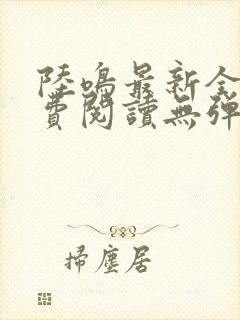 陸鳴最新全
費閱讀無彈
掃塵居